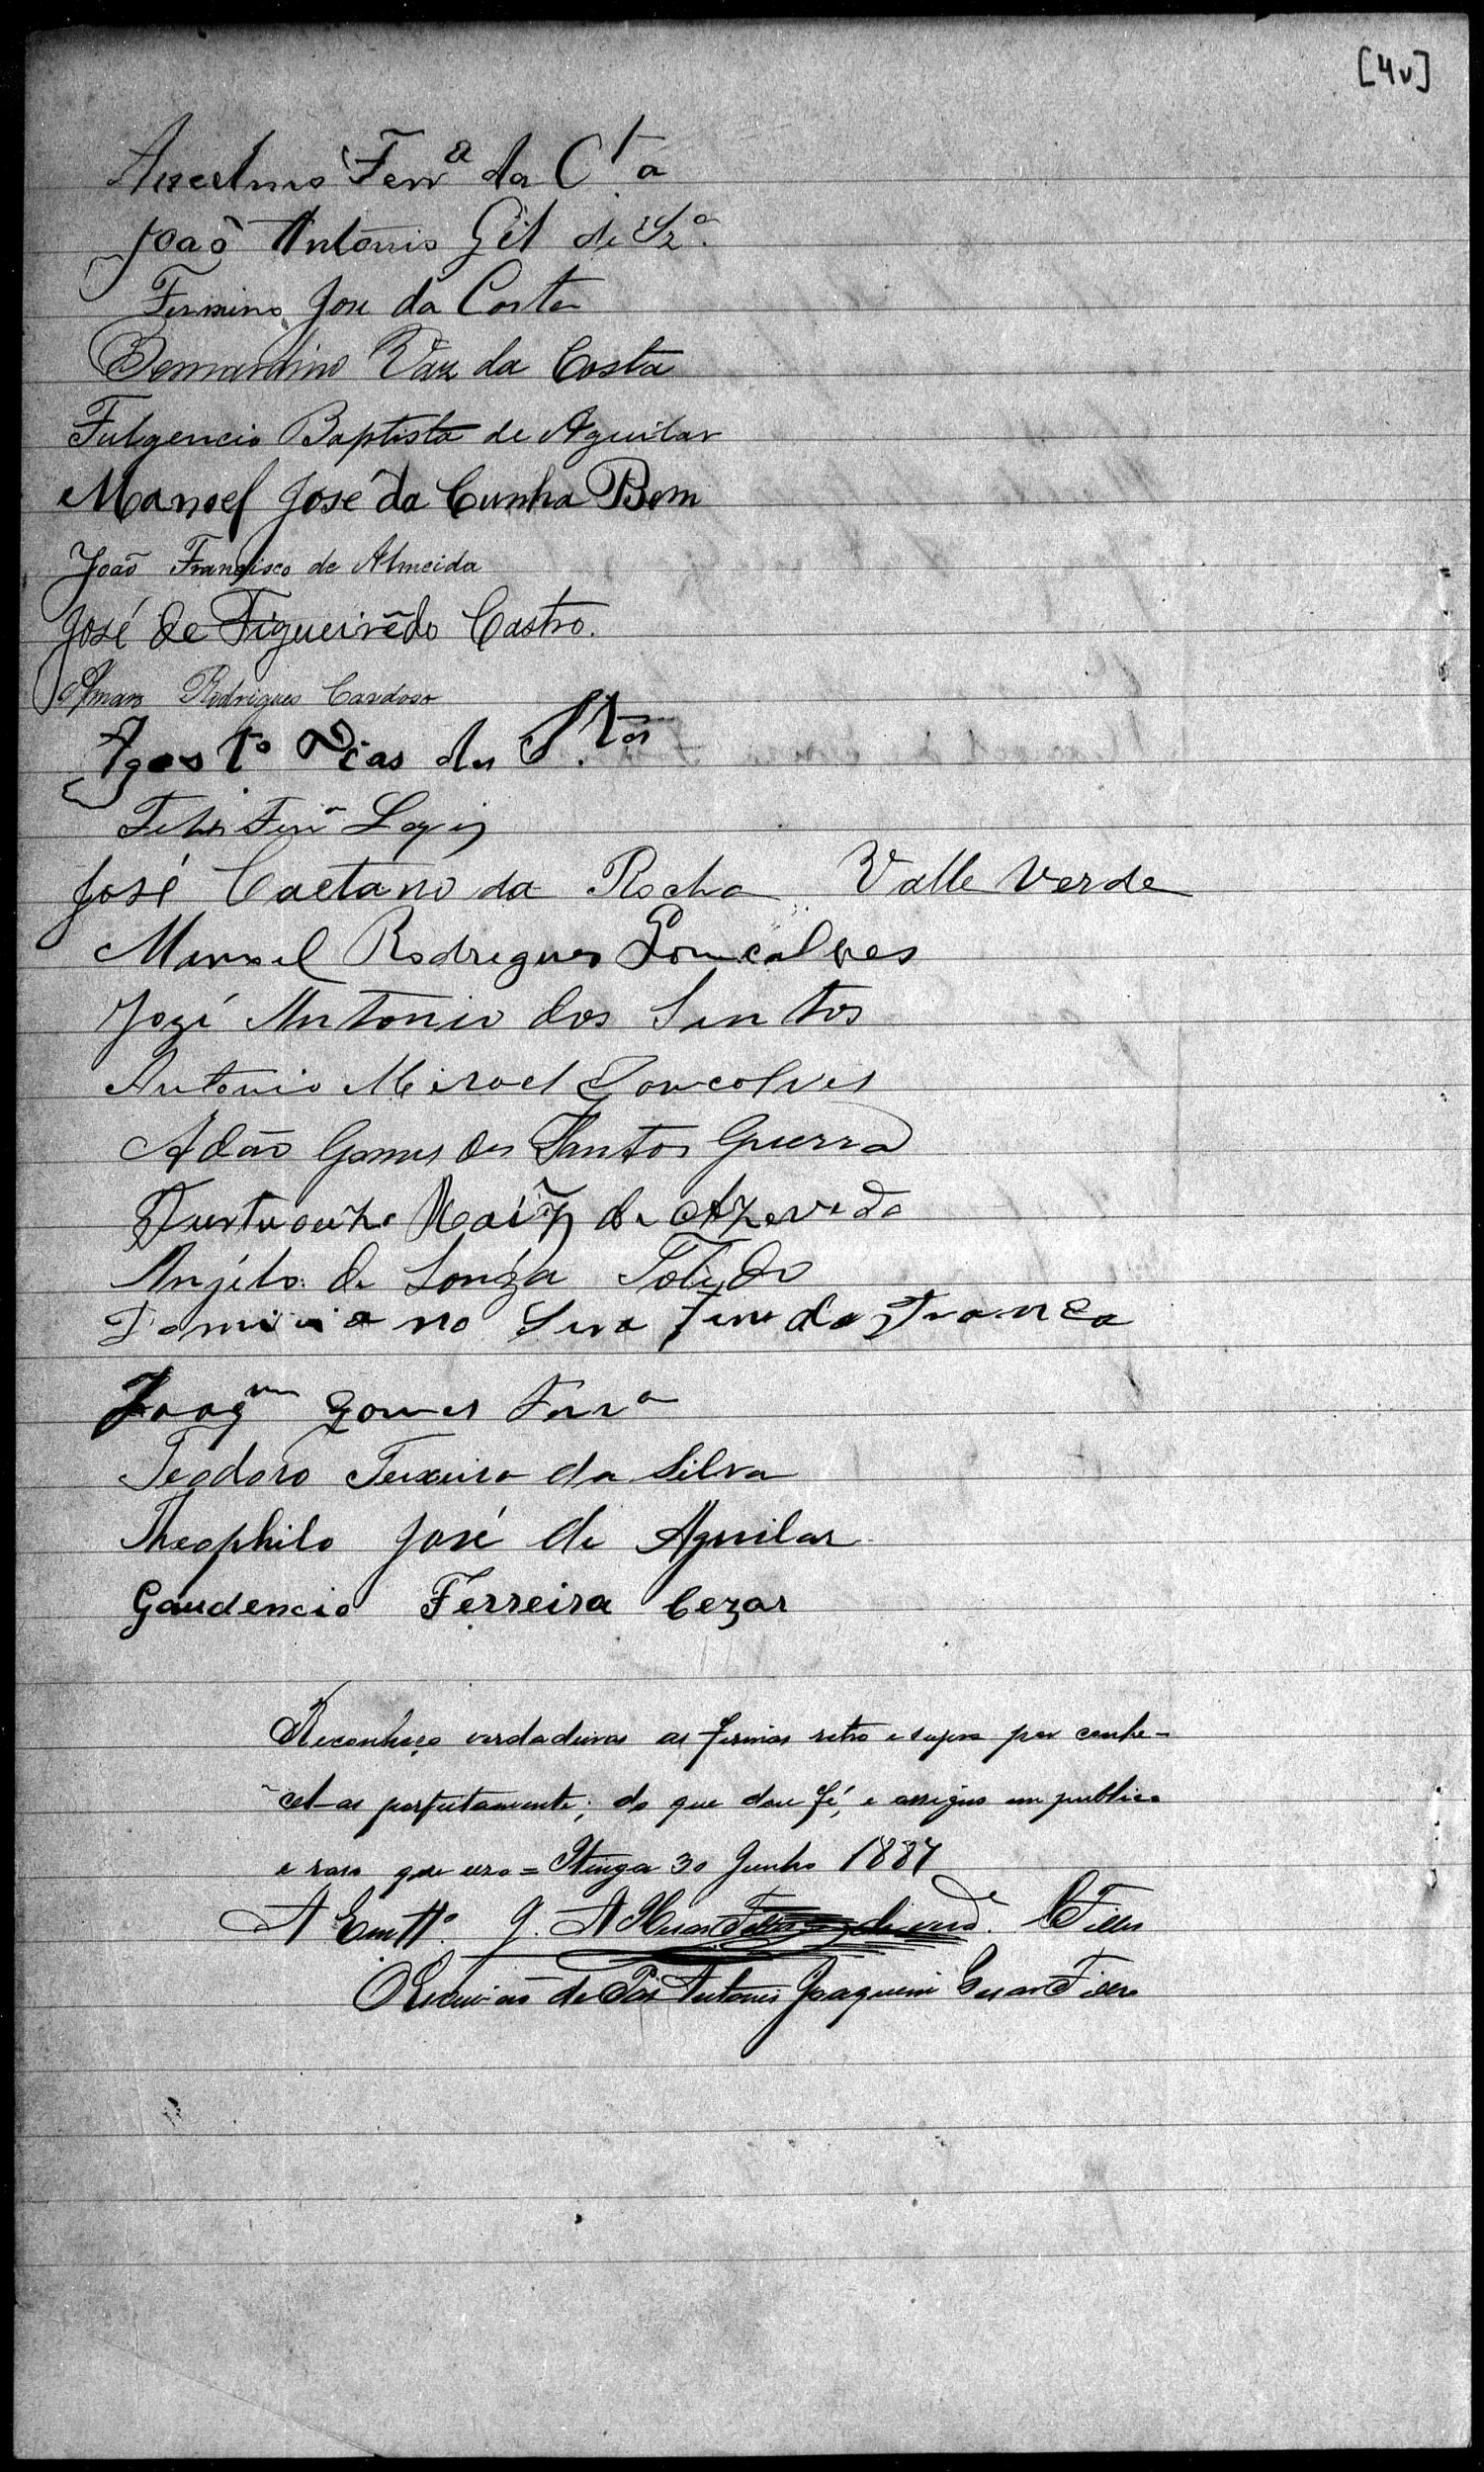 [4v]
Anselmo Ferrª da Cta
João Antonio Gil de Szª.
Fermino Jose da Costa
Bernardino Vaz da Costa
Fulgencio Baptista de Aguilar
Manoel José da Cunha Bem
João Francisco de Almeida
José de Figueirêdo Castro.
Amaro Rodrigues Cardoso
Agosto Dias dos Stos
Ferrª
José Caetano da Rocha Valle Verde
Manoel Rodrigues Goncalves
Jozé Antonio dos Santos
Antonio Goncolves
Adão Gomes dos Santos Guerra
de Azevedo
Anjélo de Souza Toledo
da Franca
Joaqm Gomes Ferra
Teodoro Teixeira da Silva
Theophilo José de Aguilar
Gaudencio Ferreira Cezar
Reconheço verdadeiras as firmas retro e supra por conhe-
cel-as perfeitamente; do que dou fé, e assigno em publico
e raso que uso = Itinga 30 Junho 1887
Em tto. de verde.
O Escrivão de Paz Antonio Joaquim Cesar Filho